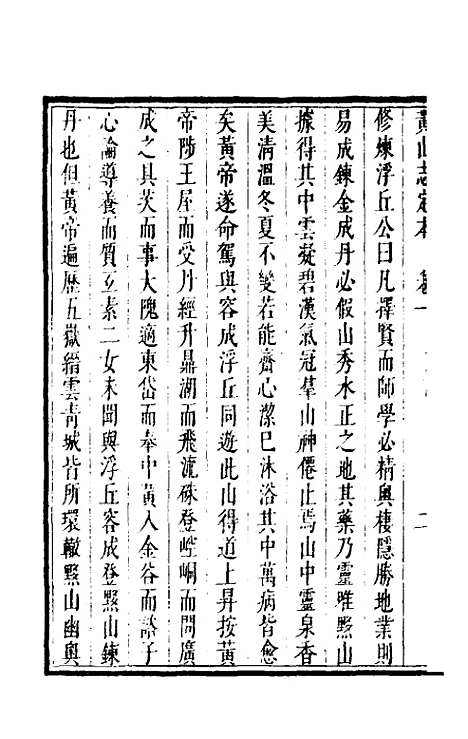 黃山志定本　卷一　二
修煉浮丘公曰凡擇賢而師學必精奥棲隱勝地業則
易成鍊金成丹必假山秀水正之地其藥乃靈唯黟山
據得其中雲凝碧漢氣冠羣山神僊止焉山中靈泉香
美清溫冬夏不變若能齋心潔已沐浴其中萬病皆愈
矣黃帝遂命駕與容成浮丘同遊此山得道上昇按黃
帝陟王屋而受丹經升鼎湖而飛流硃登崆峒而問廣
成之具茨而事大隗適東岱而奉中黃入金谷而諮子
心論導養而質玄素二女未聞與浮丘容成登黟山鍊
丹也但黃帝遍歷五嶽縉雲青城皆所環轍黟山幽奥